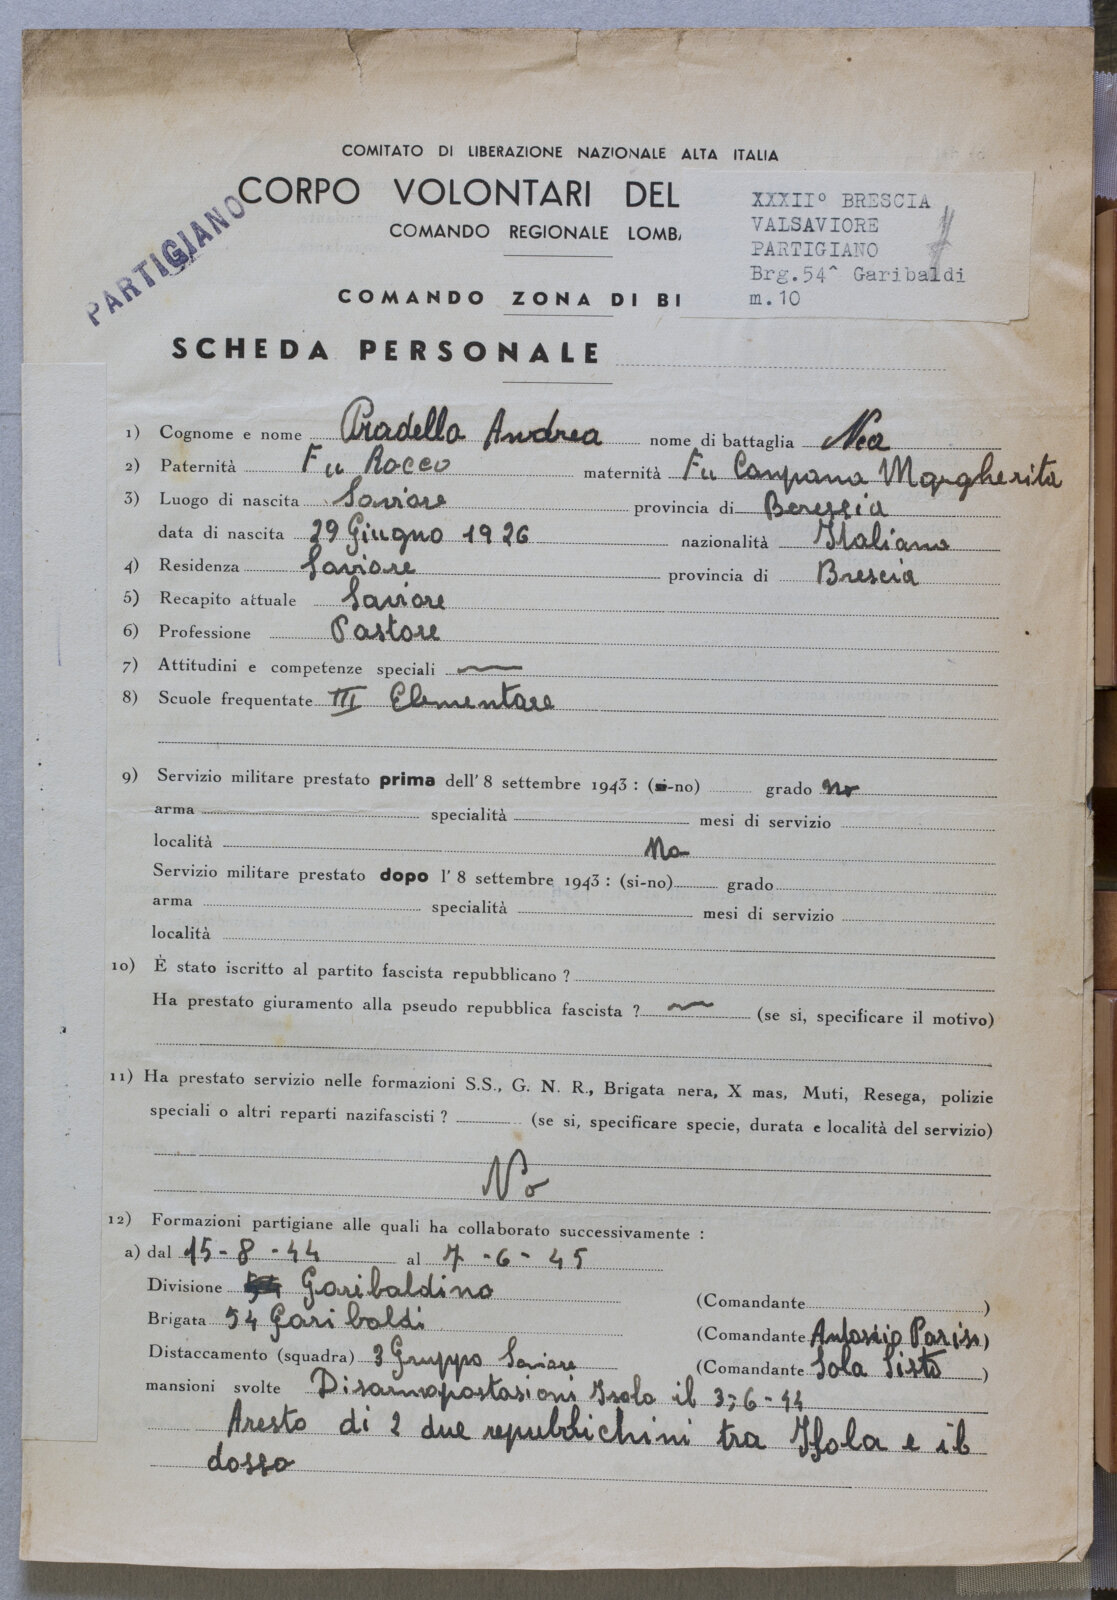 COMITATO DI LIBERAZIONE NAZIONALE ALTA ITALIA
CORPO VOLONTARI DEL
COMANDO REGIONALE LOMBA
PARTIGIANO
XXXII° BRESCIA
VALSAVIORE
PARTIGIANO
Brg.54^ Garibaldi
m.10
COMANDO ZONA DI BI
SCHEDA PERSONALE
1) Cognome e nome Pradella Andrea nome di battaglia Nea
2) Paternità Fu Rocco maternità Fu Campana Margherita
3) Luogo di nascita Saviore provincia di Beressia
data di nascita 29 Giugno 1926 nazionalità Italiana
4) Residenza Saviore provincia di Brescia
5) Recapito attuale Saviore
6) Professione Pastore
7) Attitudini e competenze speciali
8) Scuole frequentate III Elementare
9) Servizio militare prestato prima dell' 8 settembre 1943 : (si-no) grado No
arma specialità mesi di servizio
località No
Servizio militare prestato dopo l' 8 settembre 1943 : (si-no) grado
arma specialità mesi di servizio
località
10) È stato iscritto al partito fascista repubblicano ?
Ha prestato giuramento alla pseudo repubblica fascista ? (se si, specificare il motivo)
11) Ha prestato servizio nelle formazioni S.S., G. N. R., Brigata nera, X mas, Muti, Resega, polizie
speciali o altri reparti nazifascisti ? (se si, specificare specie, durata e località del servizio)
No
12) Formazioni partigiane alle quali ha collaborato successivamente :
a) dal 15-8-44 al 7-6-45
Divisione Garibaldina (Comandante )
Brigata 54 Garibaldi (Comandante Antonio Parisi)
Distaccamento (squadra) 3 Gruppo Saviore (Comandante Sola Sisto )
mansioni svolte Disarmopostasioni Isola il 3-6-44
Aresto di 2 due repubblichini tra Isola e il
dosso